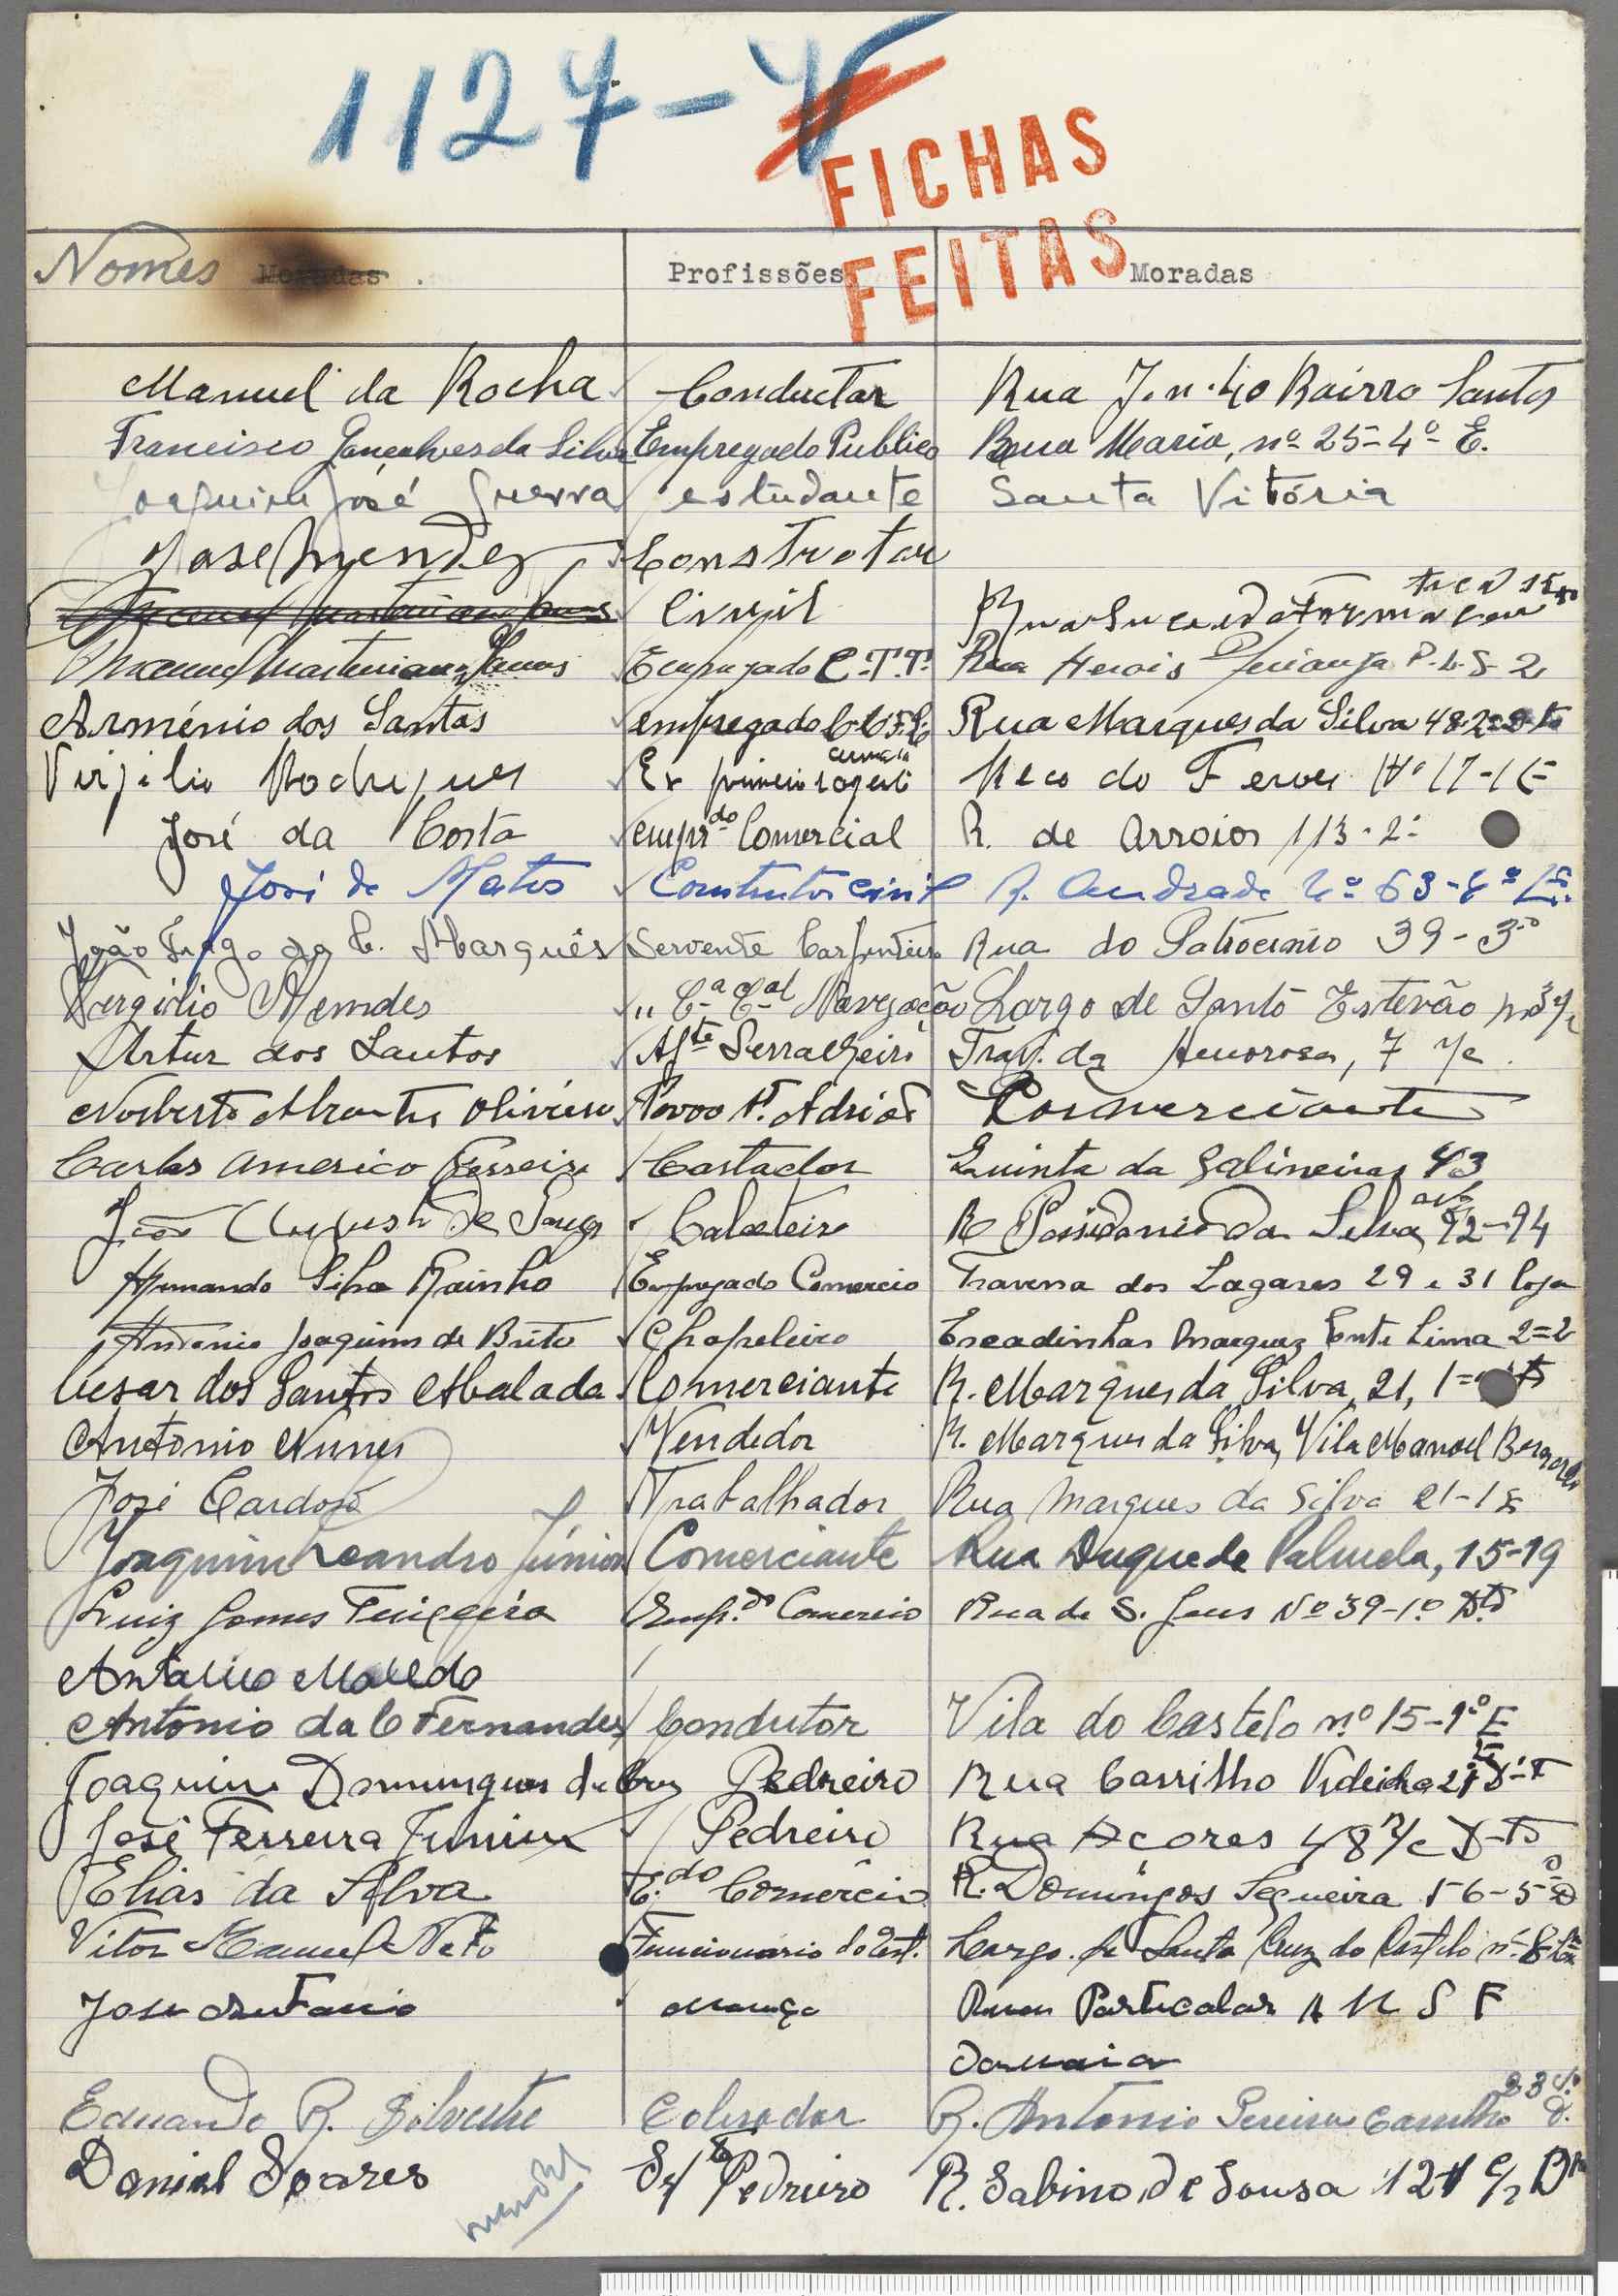 1127-V
FICHAS
FEITAS
Nomes Moradas Profissões Moradas
Manuel da Rocha Conductar Rua J. nº 40 Bairro Santos
Francisco Gonçalves da Silva Empregado Publico Rua Maria, nº 25-4º E.
Joaquim José Guerra estudante Santa Vitória
José Mendes Constructor
Civil
Empregado C.T.T. Rua Herois
Arménio dos Santos empregado Rua Marques da Silva 48-2º
Virjilio Rodrigues Ex primeiro Beco do Nº 17-1E
José da Costa empr.do Comercial R. de Arroios 113-2º
José de Matos Construtor civil R. Andrade nº 63-
João da C. Marquês Servente Carpinteiro Rua do Patrocinio 39-3º
Vergilio Mendes " Cª Cal Navegação Largo de Santo Estevão nº
Artur dos Santos Ajte Serralheiro Trav. da Amorosa, 7 r/c.
Norberto Abrantes Oliveira Povoa St. Adrião Commerciante
Carlos Americo Ferreira Cortador Quinta da Galineiras 43
João Augusto de Calceteiro R Possidonio da Silva 92-94
Armando Silva Rainho Empregado Comercio Travessa dos Lagares 29 e 31 loja
Antonio Joaquim de Brito Chapeleiro Escadinhas Marquez Ponte Lima 2=2
Cesar dos Santos Abalada Comerciante R. Marques da Silva, 21, 1=
António Nunes Vendedor R. Marques da Silva, Vila Manoel
José Cardoso Trabalhador Rua Marques da Silva 21-1
Joaquim Leandro Júnior Comerciante Rua Duque de Palmela, 15-19
Luiz Gomes Teixeira Emp.do Comercio Rua de S. Nº 39-1º Dto
António Macedo
António da C Fernandes Condutor Vila do Castelo nº 15-1º E
Joaquim Domingues da Cruz Pedreiro Rua Carrilho Videira
José Ferreira Junior Pedreiro Rua Açores 48 r/c D-to
Elias da Silva E.do Comércio R. Domingos Sequeira 56-5º
Vitor Manuel Neto Funcionario do Est. Largo de Santa Cruz do Castelo nº 8
José Antonio Rua Particular A M S F
Damaia
Eduardo R. Silvestre Cobrador R. Antonio Pereira Carrilho 23
Daniel Soares Pedreiro R. Sabino de Sousa 121